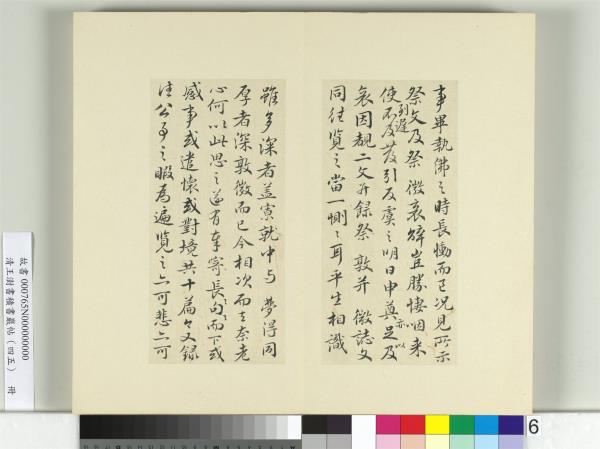 事畢執佛之時長慟而已況見所示
祭文及祭微哀辭豈勝悽咽来
使到遲不及發引反虞之明日申奠亦足以及
哀因覩二文并錄祭敦并微誌文
同往覽之當一惻惻耳平生相識
雖多深者蓋寡就中与夢得同
厚者深敦微而已今相次而去奈老
心何以此思之遂有奉寄長句長句而下或
感事或遣懷或對境共十篇今又錄
往公事之暇為遍覽之亦可悲亦可
故書000765N000000000
清王澍書積書巖帖（四五） 冊
6